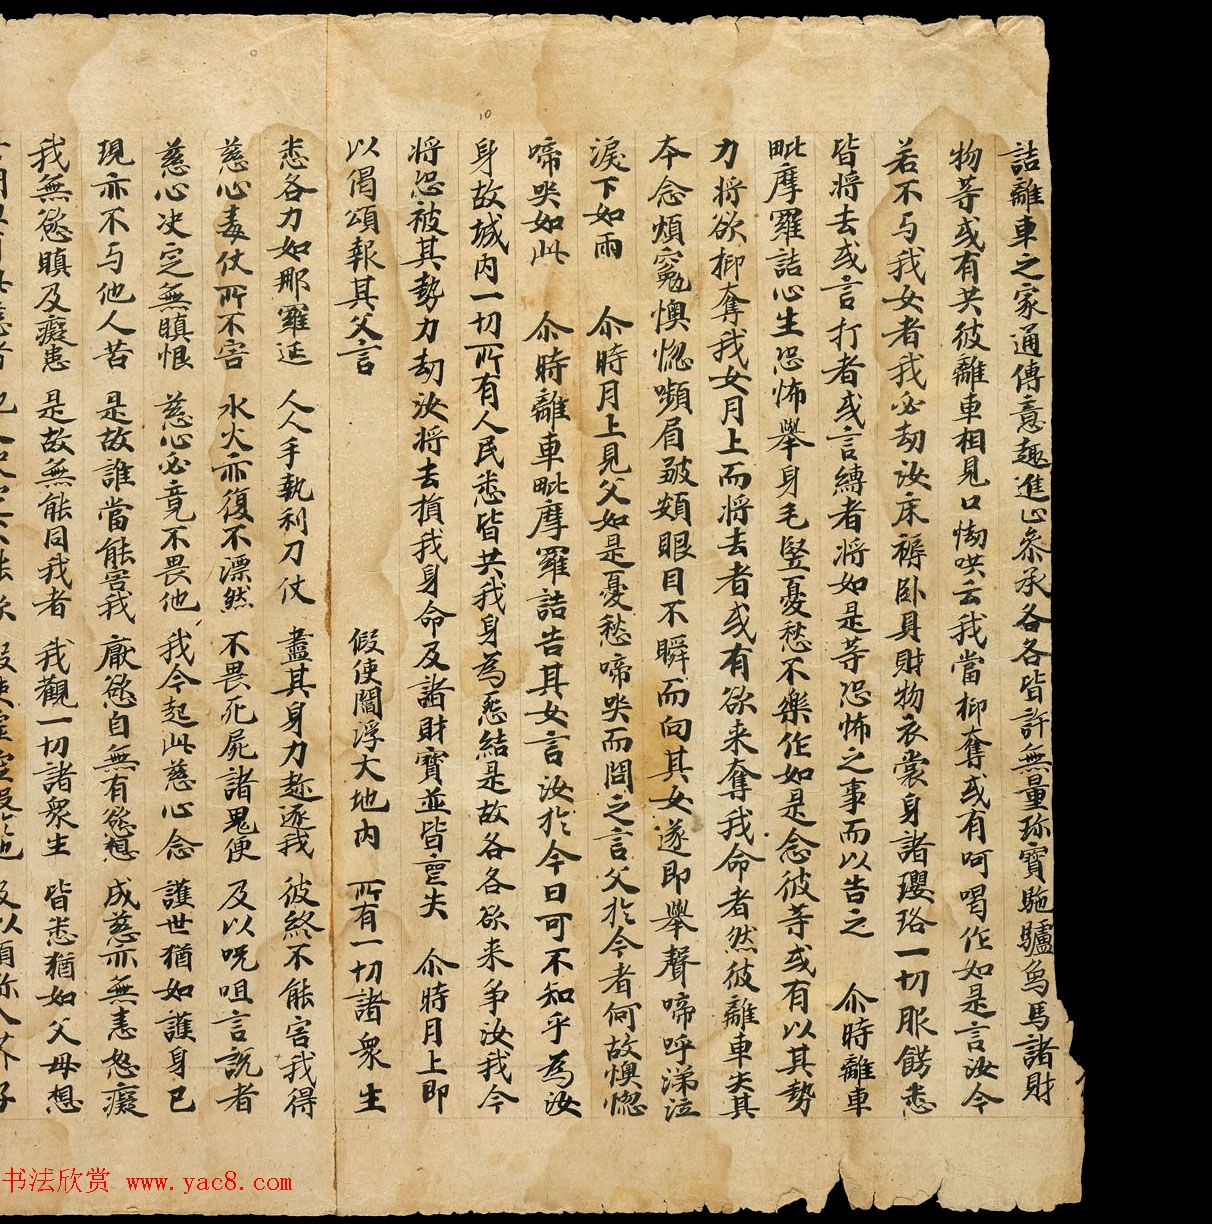 詰離車之家通傳意趣進止叅承各各皆許無量珎寶駞驢烏馬諸財
物等或有共彼離車相見口恸哄云我當抑奪或有呵喝作如是言汝今
若不与我女者我必劫汝床褥卧具財物衣裳身諸瓔珞一切服餝悉
皆將去或言打者或言縛者將如是等恐怖之事而以告之　尒時離車
毗摩羅詰心生恐怖舉身毛竪憂愁不樂作如是念彼等或有以其勢
力將欲抑奪我女月上而將去者或有欲来奪我命者然彼離車失其
夲念煩寃懊惚嚬眉皺頞眼目不瞬而向其女遂即舉聲啼呼涕泣
淚下如雨　尒時月上見父如是憂愁啼哭而問之言父扵今者何故懊惚
啼哭如此　尒時離車毗摩羅詰告其女言汝扵今日可不知乎為汝
身故城内一切所有人民悉皆共我身為惡結是故各各欲来争汝我今
將恐被其勢力劫汝將去損我身命及諸財寶並皆喪失　尒時月上即
以偈頌報其父言　假使閻浮大地内　所有一切諸衆生
悉各力如那羅延　人人手執利刀仗　盡其身力趂逐我　彼終不能害我得
慈心毒仗所不害　水火亦復不漂然　不畏死屍諸鬼便　及以呪咀言説者
慈心决定無瞋恨　慈心必竟不畏他　我今起此慈心念　護世猶如護身已
現亦不与他人苦　是故誰當能害我　厭慾自無有慾想　成慈亦無恚怒癡
我無慾瞋及癡恚　是故無能同我者　我觀一切諸衆生　皆悉猶如父母想
书法欣赏 www.yac8.com